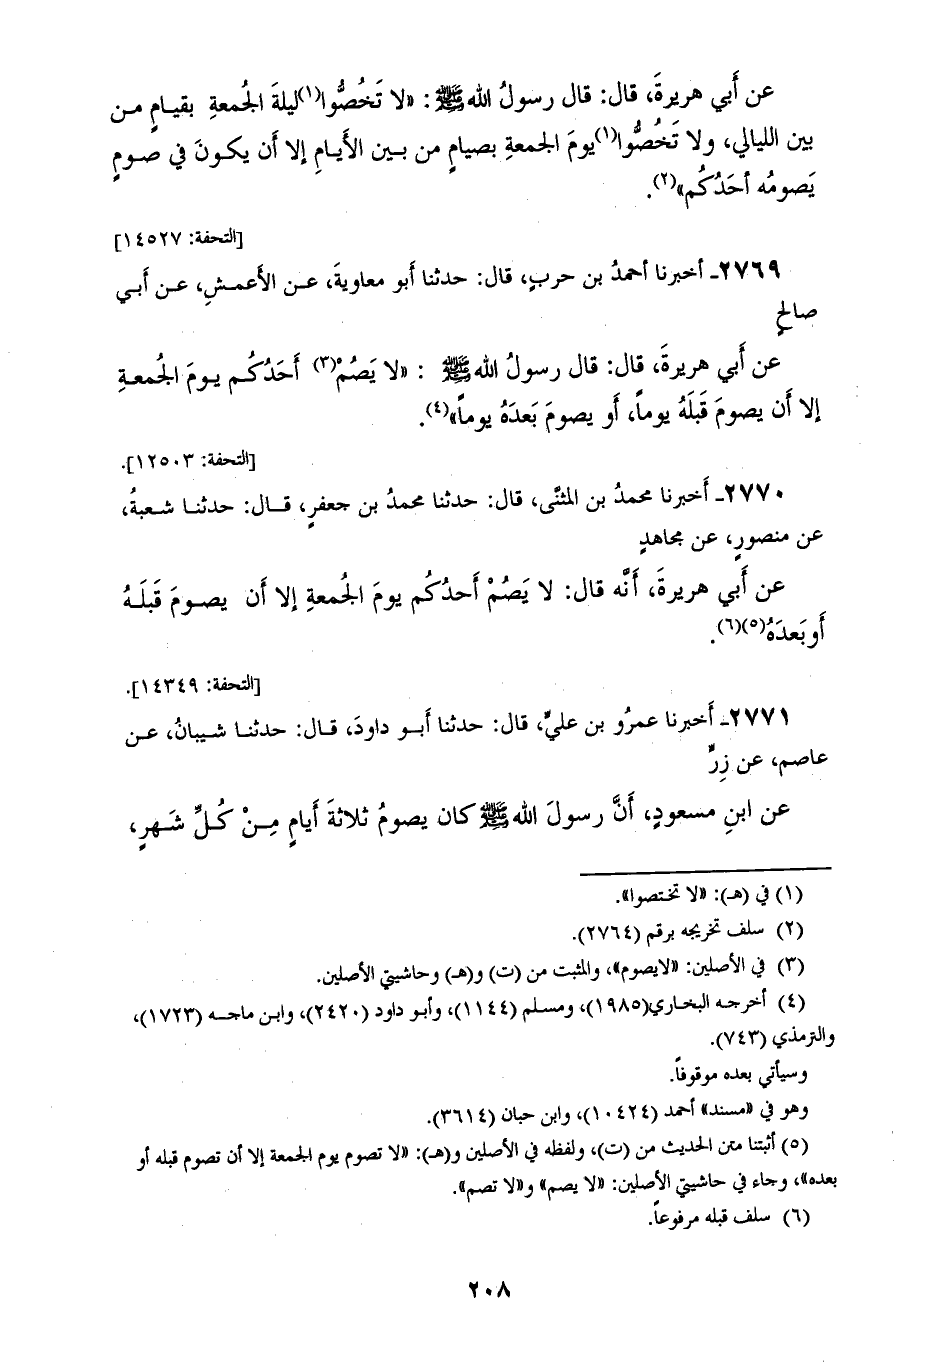 عن أَبي هريرةَ، قال: قال رسولُ الله ﷺ: «لا تَخُصُّوا(١) ليلةَ الجُمعةِ بقيامٍ مـن
بين الليالي، ولا تَخُصُّوا(١) يومَ الجمعةِ بصيامٍ من بـين الأيـامِ إلا أن يكـونَ في صـومٍ
يَصومُه أحَدُكُم»(٢).
[التحفة: ١٤٥٢٧]
٢٧٦٩ـ أخبرنا أحمدُ بن حربٍ، قال: حدثنا أَبو معاويةَ، عـن الأَعمـشِ، عـن أَبـي
صالحٍ
عن أَبي هريرةَ، قال: قال رسولُ الله ﷺ : «لا يَصُمْ(٣) أَحَدُكُـم يـومَ الجُمعـةِ
إلا أَن يصومَ قَبلَهُ يوماً، أَو يصومَ بَعدَهُ يوماً»(٤).
[التحفة: ١٢٥٠٣].
٢٧٧٠ـ أَخبرنا محمدُ بن المثنَّى، قال: حدثنا محمدُ بن جعفرٍ، قـال: حدثنـا شـعبةُ،
عن منصورٍ، عن مجاهدٍ
عن أَبي هريرةَ، أَنَّه قال: لا يَصُمْ أَحدُكُم يومَ الجُمعةِ إلا أَن يصـومَ قَبلَـهُ
أَو بَعدَهُ(٥)(٦).
[التحفة: ١٤٣٤٩].
٢٧٧١ـ أَخبرنا عمرُو بن عليٍّ، قال: حدثنا أَبـو داودَ، قـال: حدثنـا شـيبانُ، عـن
عاصم، عن زِرٍّ
عن ابنِ مسعودٍ، أَنَّ رسولَ الله ﷺ كان يصومُ ثلاثةَ أَيامٍ مِـنْ كُـلِّ شَـهرٍ،
(١) في (هـ): «لا تختصوا».
(٢) سلف تخريجه برقم (٢٧٦٤).
(٣) في الأصلين: «لايصوم»، والمثبت من (ت) و(هـ) وحاشيتي الأصلين.
(٤) أخرجـه البخـاري(١٩٨٥)، ومسـلم (١١٤٤)، وأبـو داود (٢٤٢٠)، وابـن ماجـه (١٧٢٣)،
والترمذي (٧٤٣).
وسيأتي بعده موقوفاً.
وهو في «مسند» أحمد (١٠٤٢٤)، وابن حبان (٣٦١٤).
(٥) أثبتنا متن الحديث من (ت)، ولفظه في الأصلين و(هـ): «لا تصوم يوم الجمعة إلا أن تصوم قبله أو
بعده»، وجاء في حاشيتي الأصلين: «لا يصم» و«لا تصم».
(٦) سلف قبله مرفوعاً.
٢٠٨